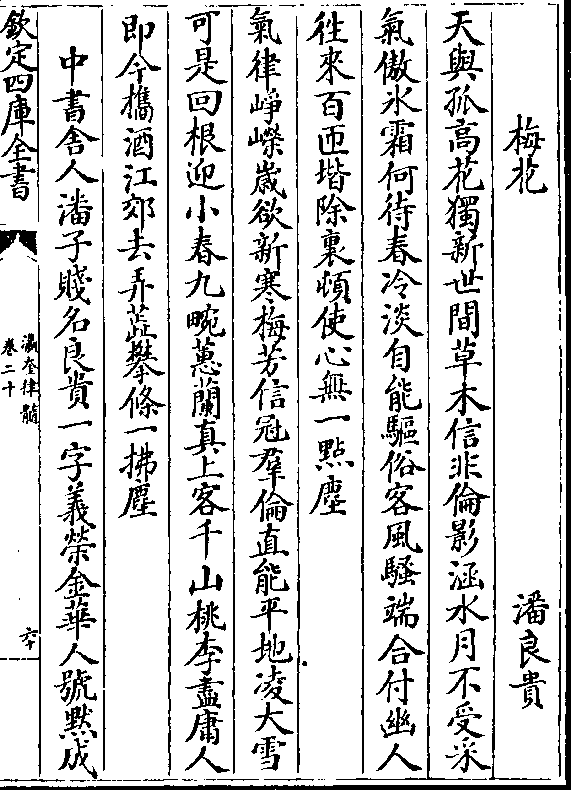 梅花　潘良貴
天與孤高花獨新世間草木信非倫影涵水月不受采
氣傲氷霜何待春冷淡自能驅俗客風騷端合付幽人
徃來百匝堦除裏頓使心無一點塵
氣律崢嶸歲欲新寒梅芳信冠羣倫直能平地凌大雪
可是回根迎小春九畹蕙蘭真上客千山桃李盡庸人
即今携酒江郊去弄蘂攀條一拂塵
中書舍人潘子賤名良貴一字義榮金華人號黙成
欽定四庫全書
瀛奎律髓
卷二十
六十